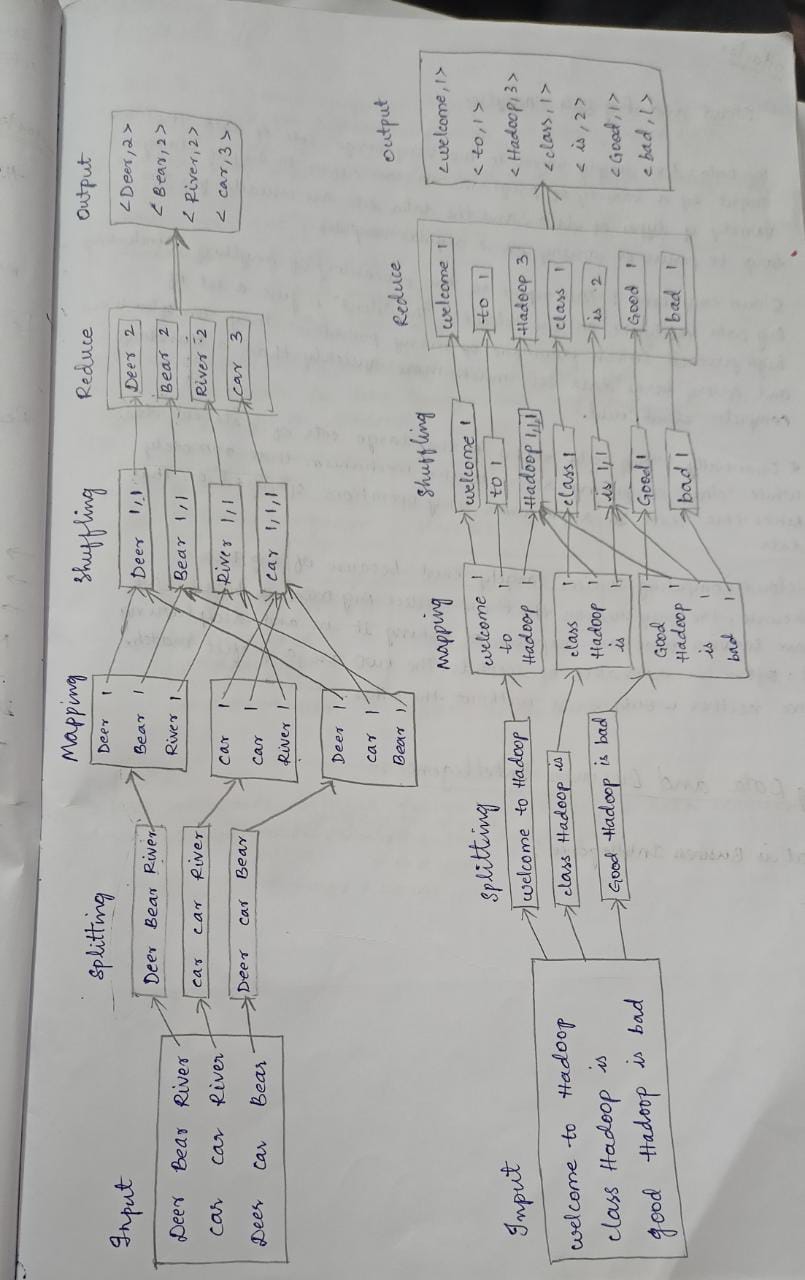 Input
Deer Bear River
car car River
Deer car Bear
Splitting
Deer Bear River
car car River
Deer car Bear
Mapping
Deer 1
Bear 1
River 1
car 1
car 1
River 1
Deer 1
car 1
Bear 1
Shuffling
Deer 1,1
Bear 1,1
River 1,1
car 1,1,1
Reduce
Deer 2
Bear 2
River 2
car 3
Output
<Deer,2>
<Bear,2>
<River,2>
<car,3>
Input
welcome to Hadoop
class Hadoop is
good Hadoop is bad
Splitting
welcome to Hadoop
class Hadoop is
Good Hadoop is bad
Mapping
welcome 1
to 1
Hadoop 1
class 1
Hadoop 1
is 1
Good 1
Hadoop 1
is 1
bad 1
Shuffling
welcome 1
to 1
Hadoop 1,1,1
class 1
is 1,1
Good 1
bad 1
Reduce
welcome 1
to 1
Hadoop 3
class 1
is 2
Good 1
bad 1
Output
<welcome,1>
<to,1>
<Hadoop,3>
<class,1>
<is,2>
<Good,1>
<bad,1>